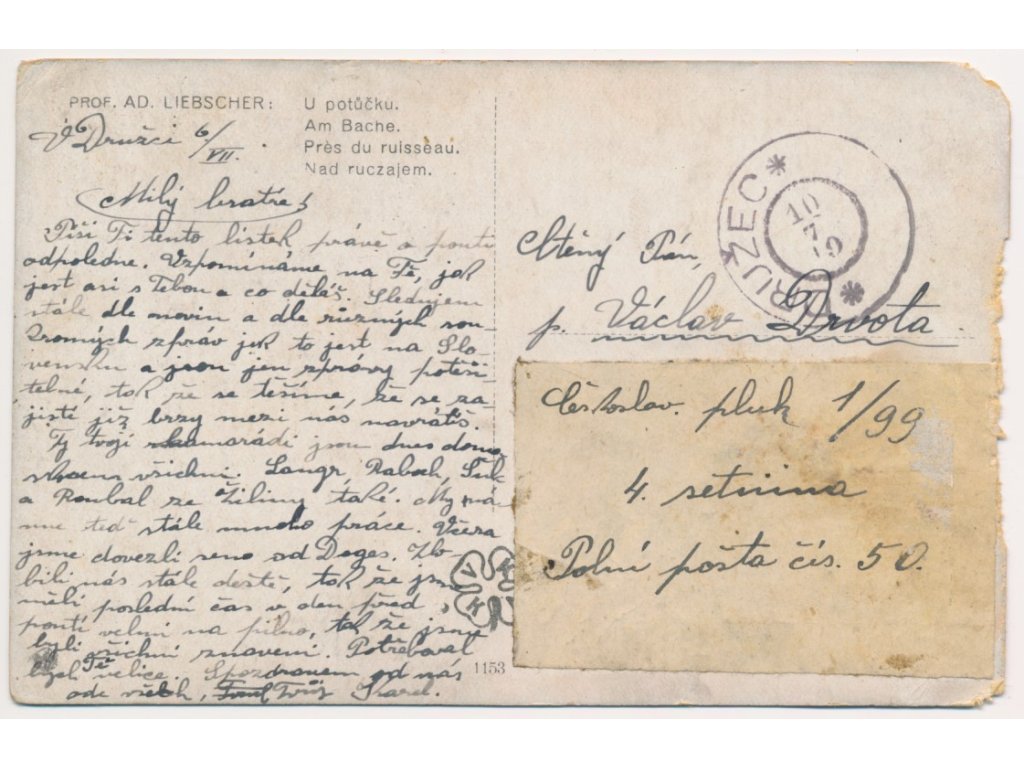 PROF. AD. LIEBSCHER:
U potůčku.
Am Bache.
Près du ruisseau.
Nad ruczajem.
V Družci 6/VII.
Milý bratře,
Píši Ti tento lístek právě o pouti
odpoledne. Vzpomínáme na Tě, jak
jest asi s Tebou a co děláš. Sledujem
stále dle novin a dle různých sou-
kromých zpráv jak to jest na Slo-
vensku a jsou jen zprávy potěši-
telné, tak že se těšíme, že se za-
jisté již brzy mezi nás navrátíš.
Ty tvoji kamarádi jsou dnes doma
skoro všichni. Langr, Raboch,
a Roubal ze Žiliny také. My má-
me teď stále mnoho práce. Včera
jsme dovezli seno od Deges. Zlo-
bili nás stále deště, tak že jsme
měli poslední čas v den před
poutí velmi na pilno, tak že jsme
byli všichni znaveni. Potřeboval
bych Tě velice. S pozdravem od nás
ode všech, Tvůj Karel.
1153
V K K V
DRUŽEC
10
7
19
Ctěný Pán,
p. Václav Drvota
Českoslov. pluk 1/99
4. setnina
Polní pošta čís. 50.